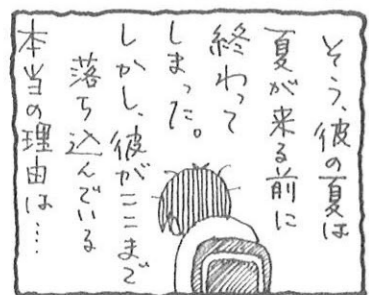 そう、彼の夏は
夏が来る前に
終わって
しまった。
しかし、彼がここまで
落ち込んでいる
本当の理由は…